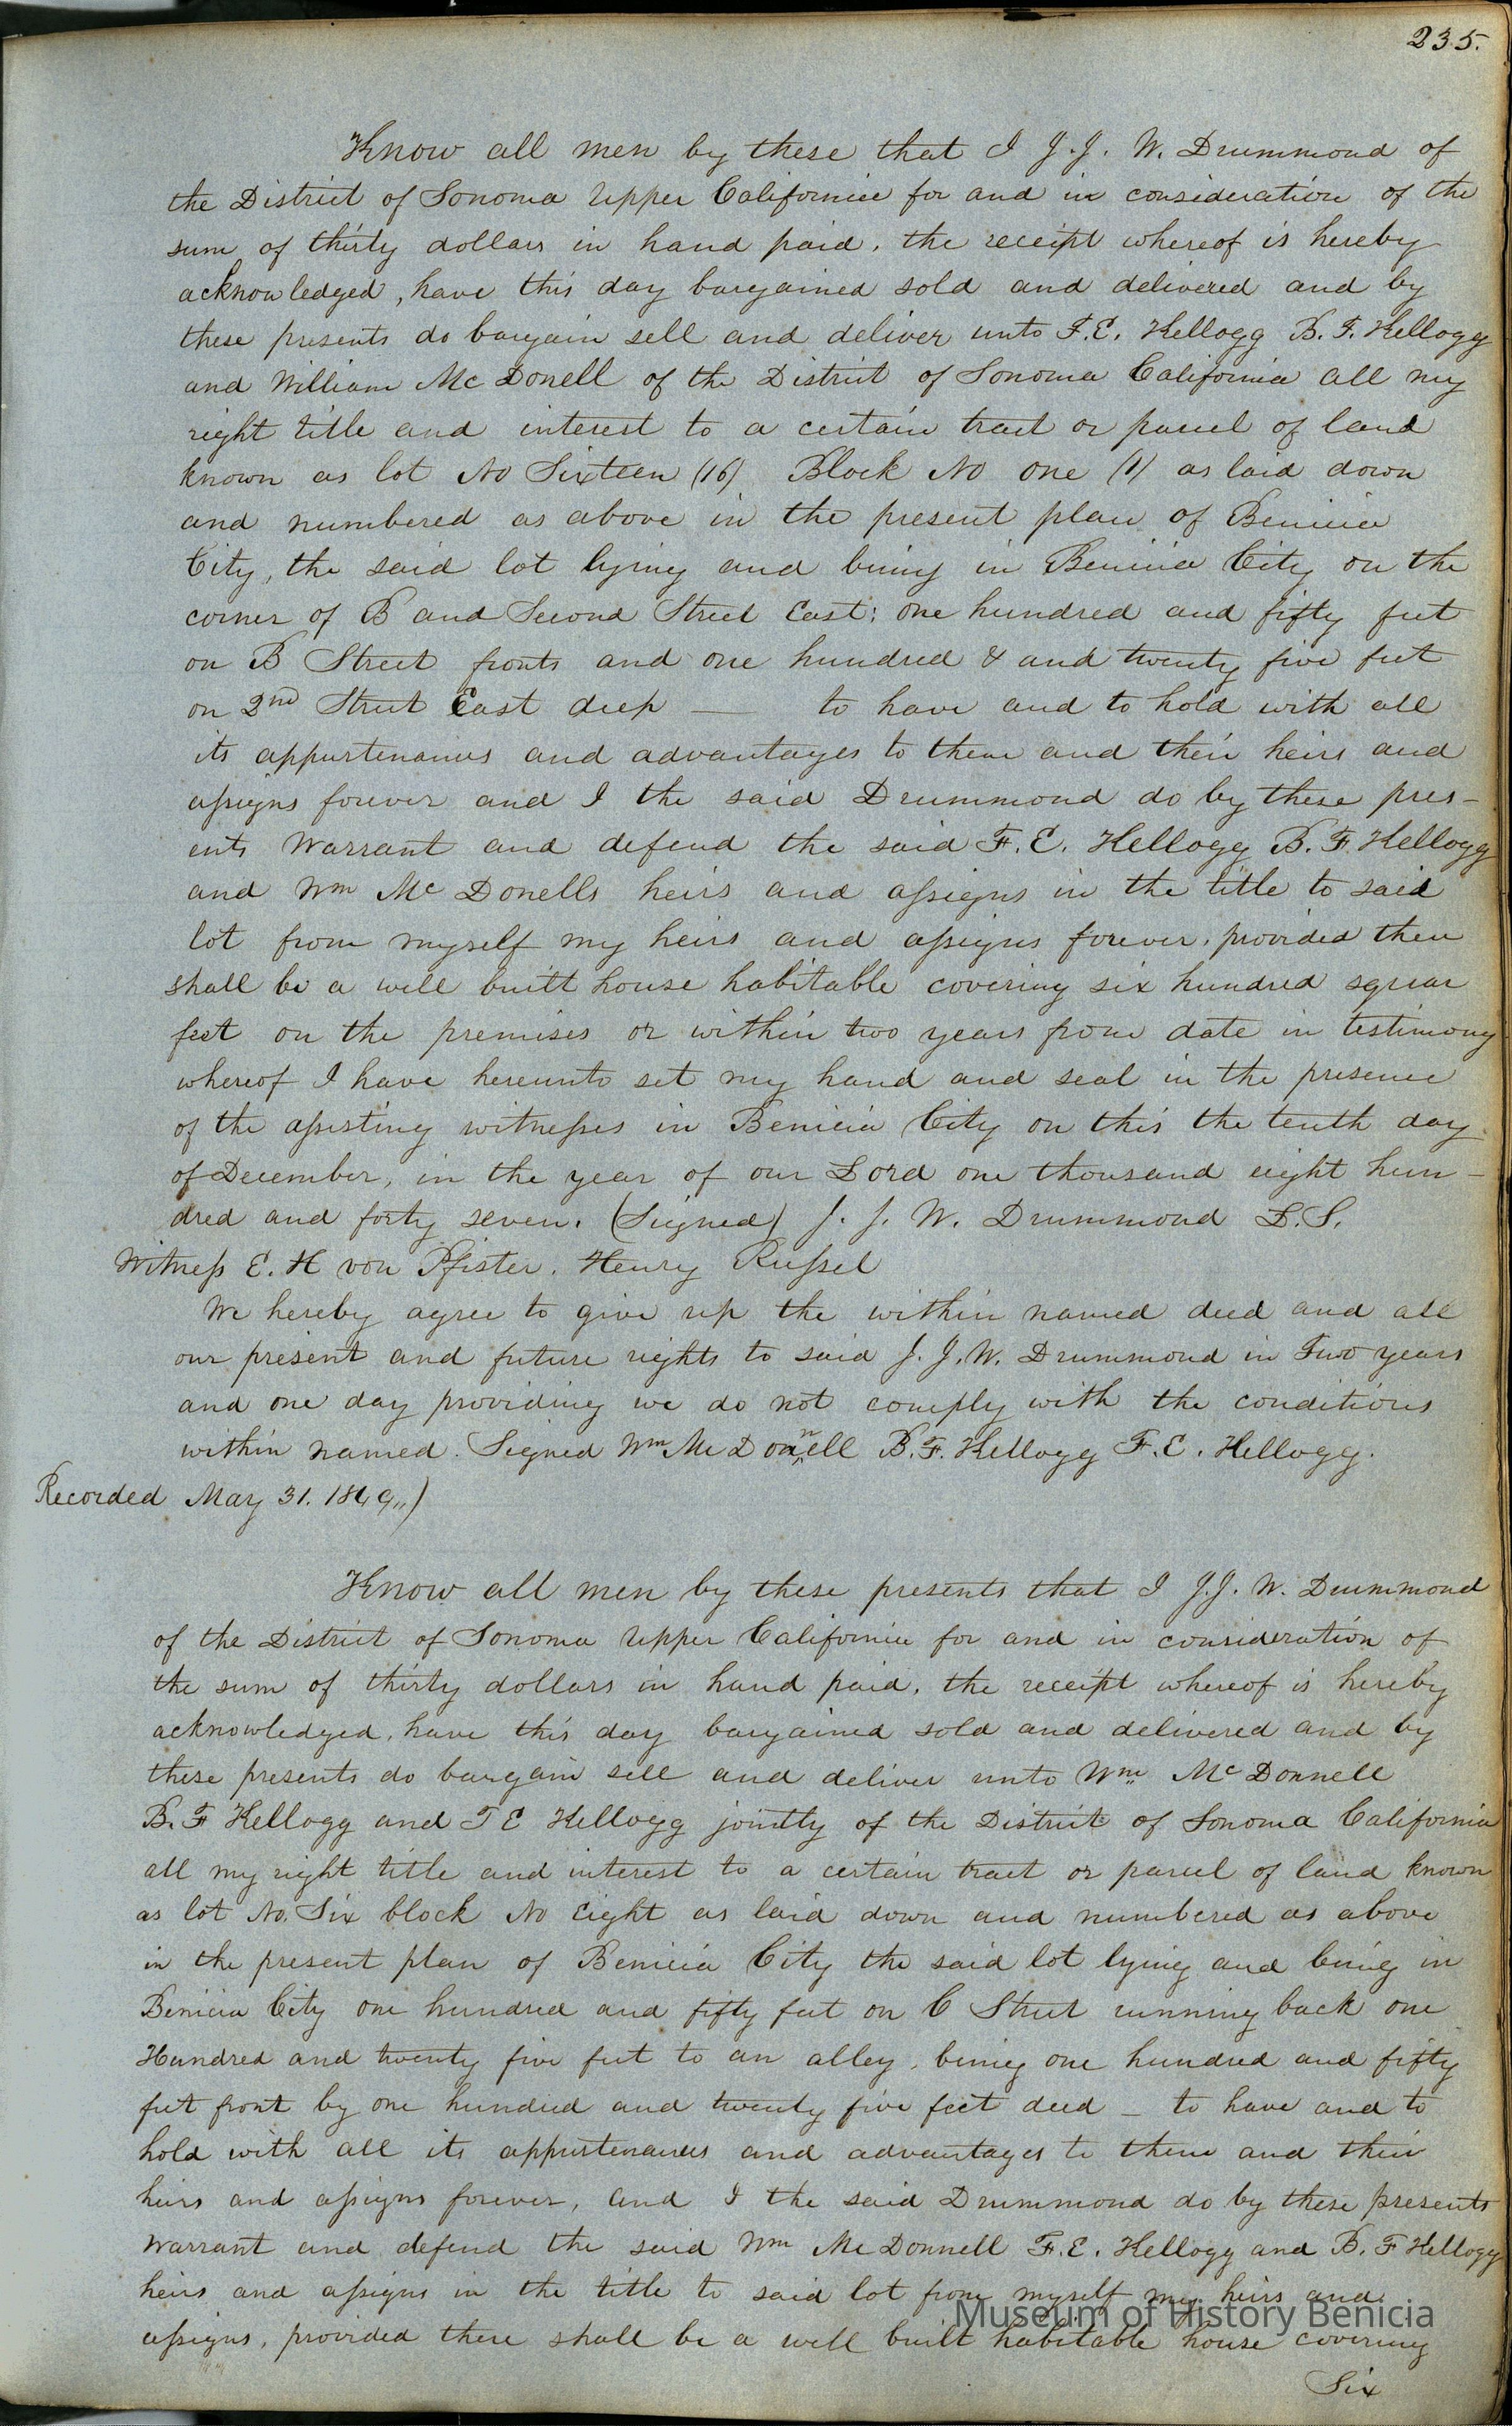 235.
Know all men by these that I J. J. W. Drummond of
the District of Sonoma Upper California for and in consideration of the
sum of thirty dollars in hand paid, the receipt whereof is hereby
acknowledged, have this day bargained sold and delivered and by
these presents do bargain sell and deliver unto F. E. Kellogg B. F. Kellogg
and William Mc Donell of the District of Sonoma California all my
right title and interest to a certain tract or parcel of land
known as lot No Sixteen (16) Block No one (1) as laid down
and numbered as above in the present plan of Benicia
City, the said lot lying and being in Benicia City on the
corner of B and Second Street East; one hundred and fifty feet
on B Street fronts and one hundred & and twenty five feet
on 2nd Street East deep — to have and to hold with all
its appurtenances and advantages to them and their heirs and
assigns forever and I the said Drummond do by these pres-
ents Warrant and defend the said F. E. Kellogg B. F. Kellogg
and Wm Mc Donells heirs and assigns in the title to said
lot from myself my heirs and assigns forever, provided there
shall be a well built house habitable covering six hundred squar
feet on the premises or within two years from date in testimony
whereof I have hereunto set my hand and seal in the presence
of the assisting witnesses in Benicia City on this the tenth day
of December, in the year of our Lord one thousand eight hun-
dred and forty seven. (Signed) J. J. W. Drummond L.S.
Witness E. H von Pfister. Henry Russel
We hereby agree to give up the within named deed and all
our present and future rights to said J. J. W. Drummond in Two years
and one day providing we do not comply with the conditions
within named. Signed Wm Mc Donnell B. F. Kellogg F. E. Kellogg.
Recorded May 31. 1849,,)
Know all men by these presents that I J. J. W. Drummond
of the District of Sonoma Upper California for and in consideration of
the sum of thirty dollars in hand paid, the receipt whereof is hereby
acknowledged, have this day bargained sold and delivered and by
these presents do bargain sell and deliver unto Wm Mc Donnell
B. F Kellogg and F E Kellogg jointly of the District of Sonoma California
all my right title and interest to a certain tract or parcel of land known
as lot No. Six block No Eight as laid down and numbered as above
in the present plan of Benicia City the said lot lying and being in
Benicia City one hundred and fifty feet on C Street running back one
Hundred and twenty five feet to an alley, being one hundred and fifty
feet front by one hundred and twenty five feet deed – to have and to
hold with all its appurtenances and advantages to them and their
heirs and assigns forever, and I the said Drummond do by these presents
Warrant and defend the said Wm Mc Donnell F. E. Kellogg and B. F Kellogg
heirs and assigns in the title to said lot from myself my heirs and
assigns, provided there shall be a well built habitable house covering
Six
Museum of History Benicia